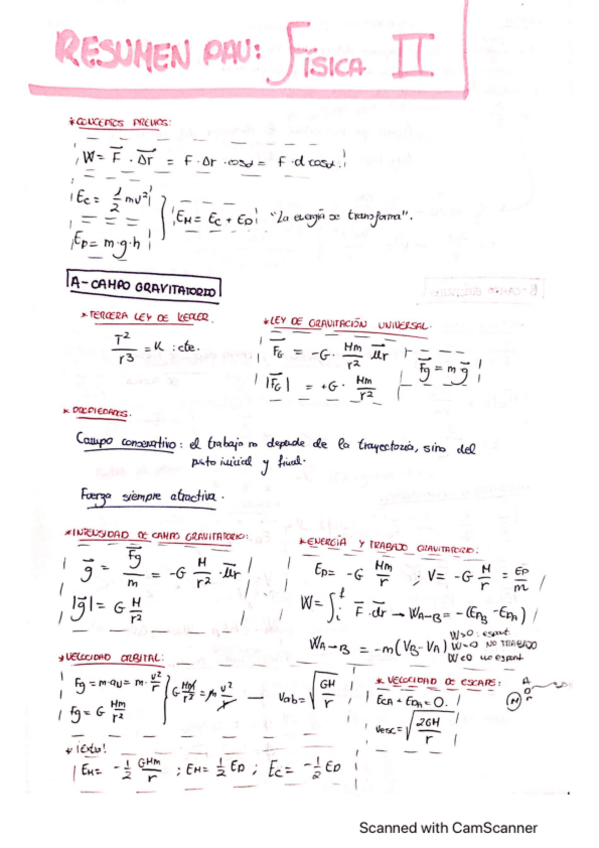 RESUMEN PAU: FÍSICA II
* CONCEPTOS PREVIOS:
W = F⃗ · Δr⃗ = F · Δr · cosα = F · d cosα.
Ec = 1/2 mv²
Ep = m·g·h
EM = Ec + Ep "La energía se transforma".
A-CAMPO GRAVITATORIO
* TERCERA LEY DE KEPLER.
T²/r³ = K : cte.
* LEY DE GRAVITACIÓN UNIVERSAL.
F⃗G = -G · Mm/r² u⃗r
|F⃗G| = +G · Mm/r²
F⃗g = m g⃗
* PROPIEDADES.
Campo conservativo: el trabajo no depende de la trayectoria, sino del
pto inicial y final.
Fuerza siempre atractiva.
* INTENSIDAD DE CAMPO GRAVITATORIO:
g⃗ = F⃗g/m = -G M/r² · u⃗r
|g⃗| = G M/r²
* ENERGÍA Y TRABAJO GRAVITATORIO:
Ep = -G Mm/r ; V = -G M/r = Ep/m
W = ∫ᵢᶠ F⃗ · dr⃗ → WA→B = -(EpB - EpA)
WA→B = -m(VB - VA)
W>0 : espont
W=0 NO TRABAJO
W<0 no espont
* VELOCIDAD ORBITAL:
Fg = m·an = m· v²/r
Fg = G Mm/r²
G Mm/r² = m v²/r — Vorb = √(GM/r)
* VELOCIDAD DE ESCAPE:
EcA + EpA = 0.
vesc = √(2GM/r)
M
* ¡Extra!
EM = -1/2 GMm/r ; EM = 1/2 Ep ; Ec = -1/2 Ep
Scanned with CamScanner